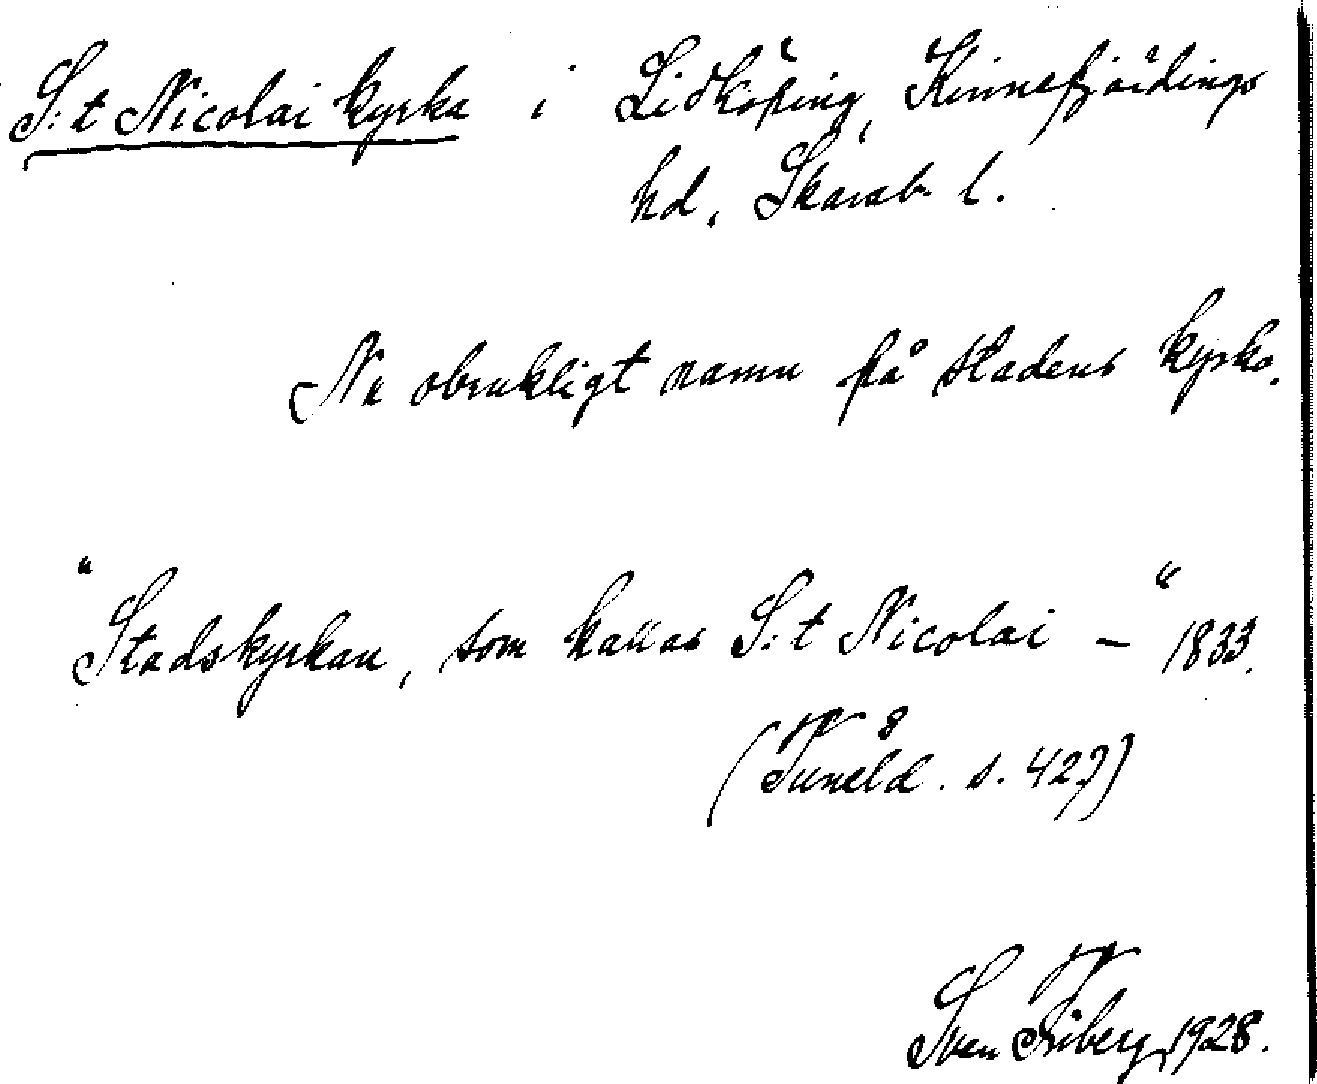 S:t Nicolai kyrka i Lidköping, Kinnefjärdings
hd, Skarab. l.
Nu obrukligt namn på stadens kyrka.
"Stadskyrkan, som kallas S:t Nicolai –" 1833.
(Tuneld 8. s. 427)
Sven Friberg, 1928.